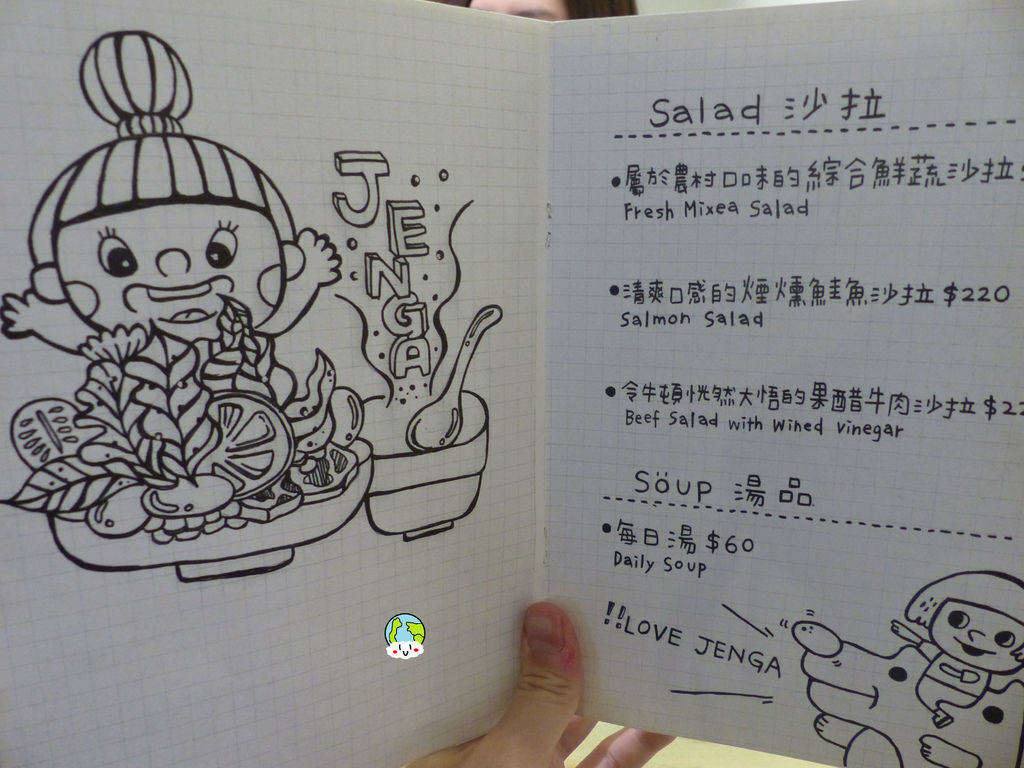 JENGA
Salad 沙拉
•屬於農村口味的綜合鮮蔬沙拉
Fresh Mixea Salad
•清爽口感的煙燻鮭魚沙拉 $220
Salmon Salad
•令牛頓恍然大悟的果醋牛肉沙拉 $22
Beef Salad with Wined Vinegar
Soup 湯品
•每日湯 $60
Daily Soup
!!LOVE JENGA